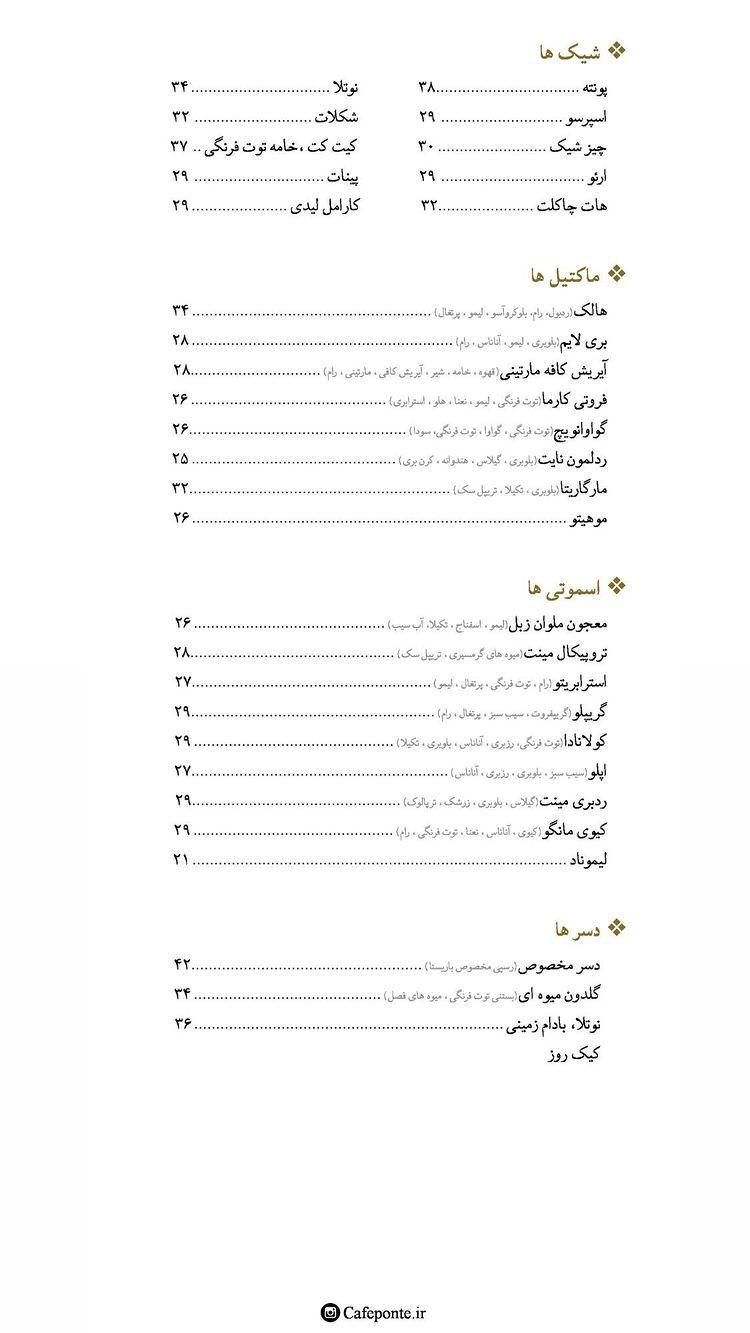 شیک ها
پونته ................................ ۳۸
نوتلا ................................ ۳۴
اسپرسو ............................ ۲۹
شکلات ........................... ۳۲
چیز شیک ......................... ۳۰
کیت کت ، خامه توت فرنگی .. ۳۷
ارئو ................................ ۲۹
پینات .............................. ۲۹
هات چاکلت ...................... ۳۲
کارامل لیدی ...................... ۲۹
ماکتیل ها
هالک (ردبول، رام، بلوکروآسو ، لیمو ، پرتغال) ........................ ۳۴
بری لایم (بلوبری ، لیمو ، آناناس ، رام) ........................ ۲۸
آیریش کافه مارتینی (قهوه ، خامه ، شیر ، آیریش کافی ، مارتینی ، رام) ........................ ۲۸
فروتی کارما (توت فرنگی ، لیمو ، نعنا ، هلو ، استرابری) ........................ ۲۶
گواوانویچ (توت فرنگی ، گواوا ، توت فرنگی، سودا) ........................ ۲۶
ردلمون نایت (بلوبری ، گیلاس ، هندوانه ، کرن بری) ........................ ۲۵
مارگاریتا (بلوبری ، تکیلا ، تریپل سک) ........................ ۳۲
موهیتو ........................ ۲۶
اسموتی ها
معجون ملوان زبل (لیمو ، اسفناج ، تکیلا، آب سیب) ........................ ۲۶
تروپیکال مینت (میوه های گرمسیری ، تریپل سک) ........................ ۲۸
استرابریتو (رام ، توت فرنگی ، پرتغال ، لیمو) ........................ ۲۷
گریپلو (گریپفروت ، سیب سبز ، پرتغال ، رام) ........................ ۲۹
کولانادا (توت فرنگی، رزبری ، آناناس ، بلوبری ، تکیلا) ........................ ۲۹
اپلو (سیب سبز ، بلوبری ، رزبری ، آناناس) ........................ ۲۷
ردبری مینت (گیلاس ، بلوبری ، زرشک ، تریالوک) ........................ ۲۹
کیوی مانگو (کیوی ، آناناس ، نعنا ، توت فرنگی ، رام) ........................ ۲۹
لیموناد ........................ ۲۱
دسر ها
دسر مخصوص (رسپی مخصوص باریستا) ........................ ۴۲
گلدون میوه ای (بستنی توت فرنگی ، میوه های فصل) ........................ ۳۴
نوتلا، بادام زمینی ........................ ۳۶
کیک روز
Cafeponte.ir